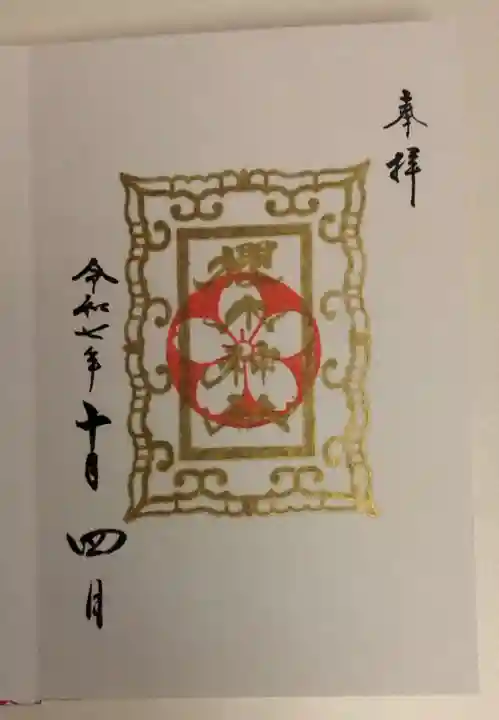 奉拝
櫻木神社
令和七年十月四月